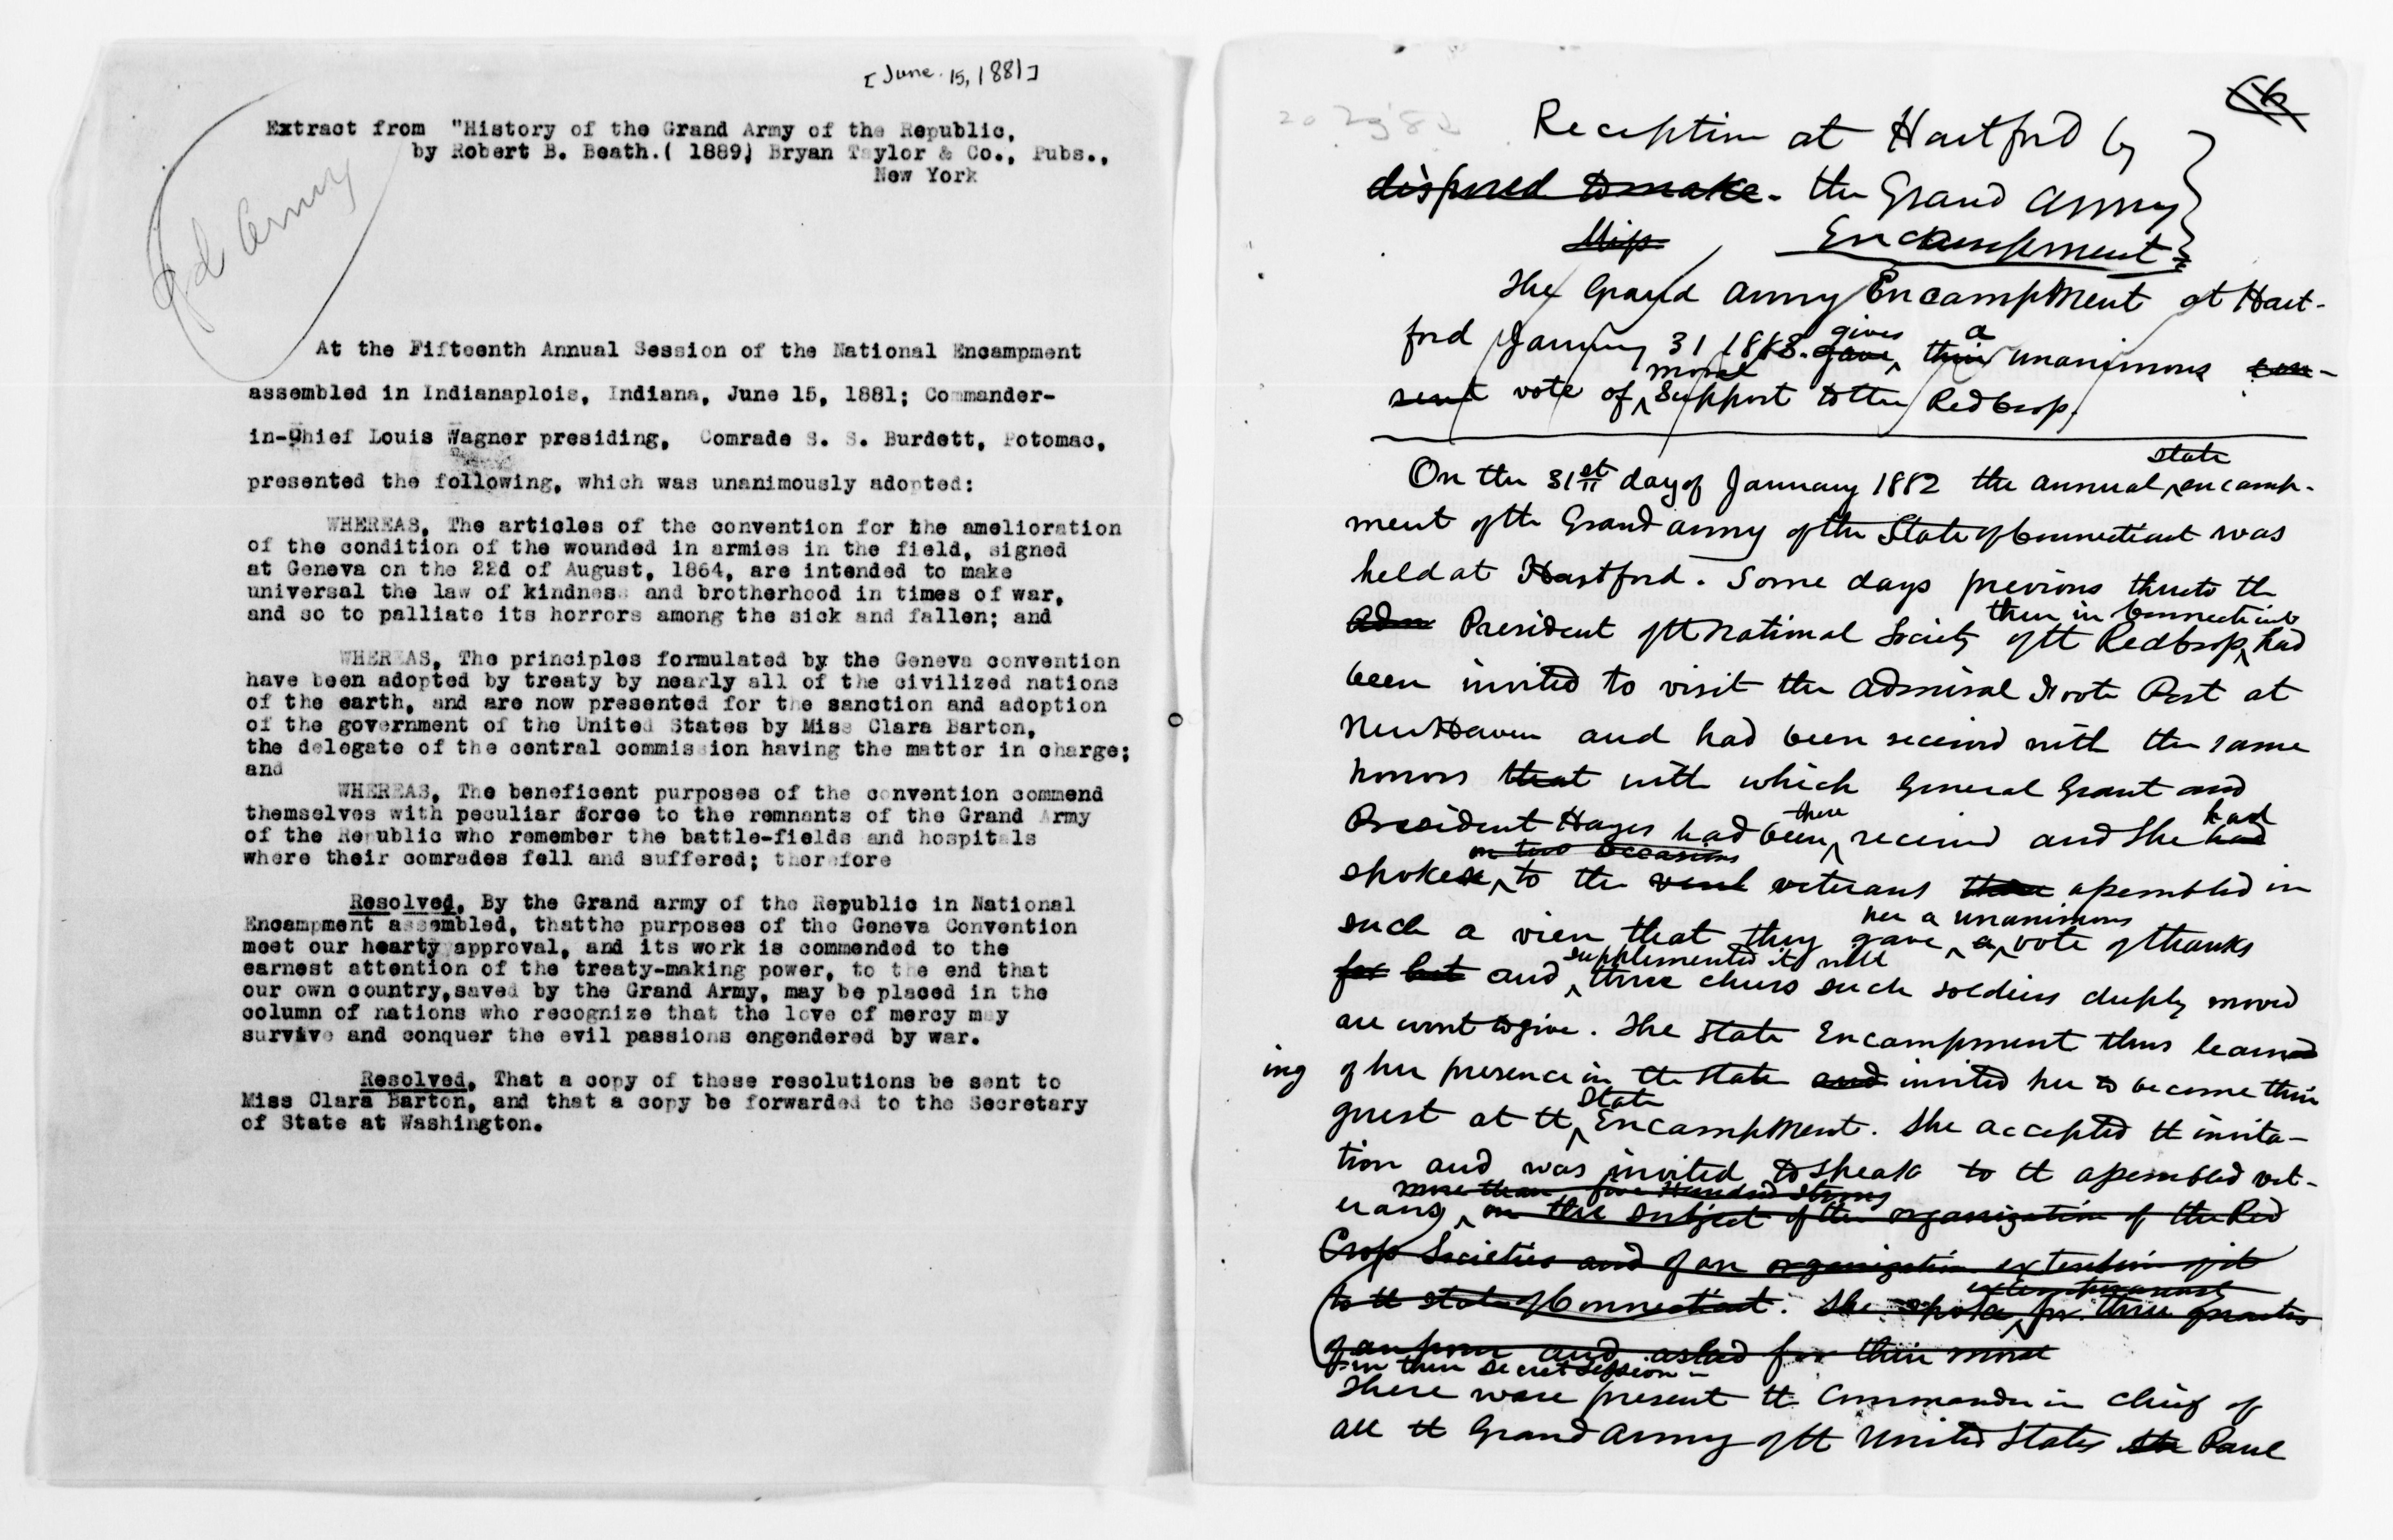 [June. 15, 1881]
Extract from "History of the Grand Army of the Republic,
by Robert B. Beath.( 1889) Bryan Taylor & Co., Pubs.,
New York
Gd Army
At the Fifteenth Annual Session of the National Encampment
assembled in Indianaplois, Indiana, June 15, 1881; Commander-
in-Chief Louis Wagner presiding, Comrade S. S. Burdett, Potomac,
presented the following, which was unanimously adopted:
WHEREAS, The articles of the convention for the amelioration
of the condition of the wounded in armies in the field, signed
at Geneva on the 22d of August, 1864, are intended to make
universal the law of kindness and brotherhood in times of war,
and so to palliate its horrors among the sick and fallen; and
WHEREAS, The principles formulated by the Geneva convention
have been adopted by treaty by nearly all of the civilized nations
of the earth, and are now presented for the sanction and adoption
of the government of the United States by Miss Clara Barton,
the delegate of the central commission having the matter in charge;
and
WHEREAS, The beneficent purposes of the convention commend
themselves with peculiar force to the remnants of the Grand Army
of the Republic who remember the battle-fields and hospitals
where their comrades fell and suffered; therefore
Resolved, By the Grand army of the Republic in National
Encampment assembled, thatthe purposes of the Geneva Convention
meet our hearty approval, and its work is commended to the
earnest attention of the treaty-making power, to the end that
our own country,saved by the Grand Army, may be placed in the
column of nations who recognize that the love of mercy may
survive and conquer the evil passions engendered by war.
Resolved, That a copy of these resolutions be sent to
Miss Clara Barton, and that a copy be forwarded to the Secretary
of State at Washington.
Reception at Hartford by
disposed to make - the Grand Army
Miss Encampment
The Grand Army Encampment at Hart-
gives a
ford January 31 1883. gave their unanimous con-
moral
sent vote of support to the Red Cross.
state
On the 31st day of January 1882 the annual encamp-
ment of the Grand army of the State of Connecticut was
held at Hartford. Some days previous thereto the
then in Connecticut
Adm President of the National Society of the Red Cross had
been invited to visit the Admiral Foote Post at
New Haven and had been received with the same
honors that with which General Grant and
there had
President Hayes had been received and She had
on two occasions
spoken to the veterans assembled in
her a unanimous
such a vien that they gave a vote of thanks
supplemented it with
for but and three cheers such soldiers deeply moved
are wont to give. The State Encampment thus learned
ing of her presence in the state and invited her to become their
State
guest at tt Encampment. She accepted tt invita-
tion and was invited to speak to tt assembled vet-
more than five Hundred strong
erans, on the subject of the organization of the Red
Cross Societies and of an organization extension of it
extemporaneously
to tt state of Connecticut. She spoke for three quarters
of an hour and asked for their moral
in their secret session -
There were present tt Commander in chief of
all tt Grand Army of tt United States Paul